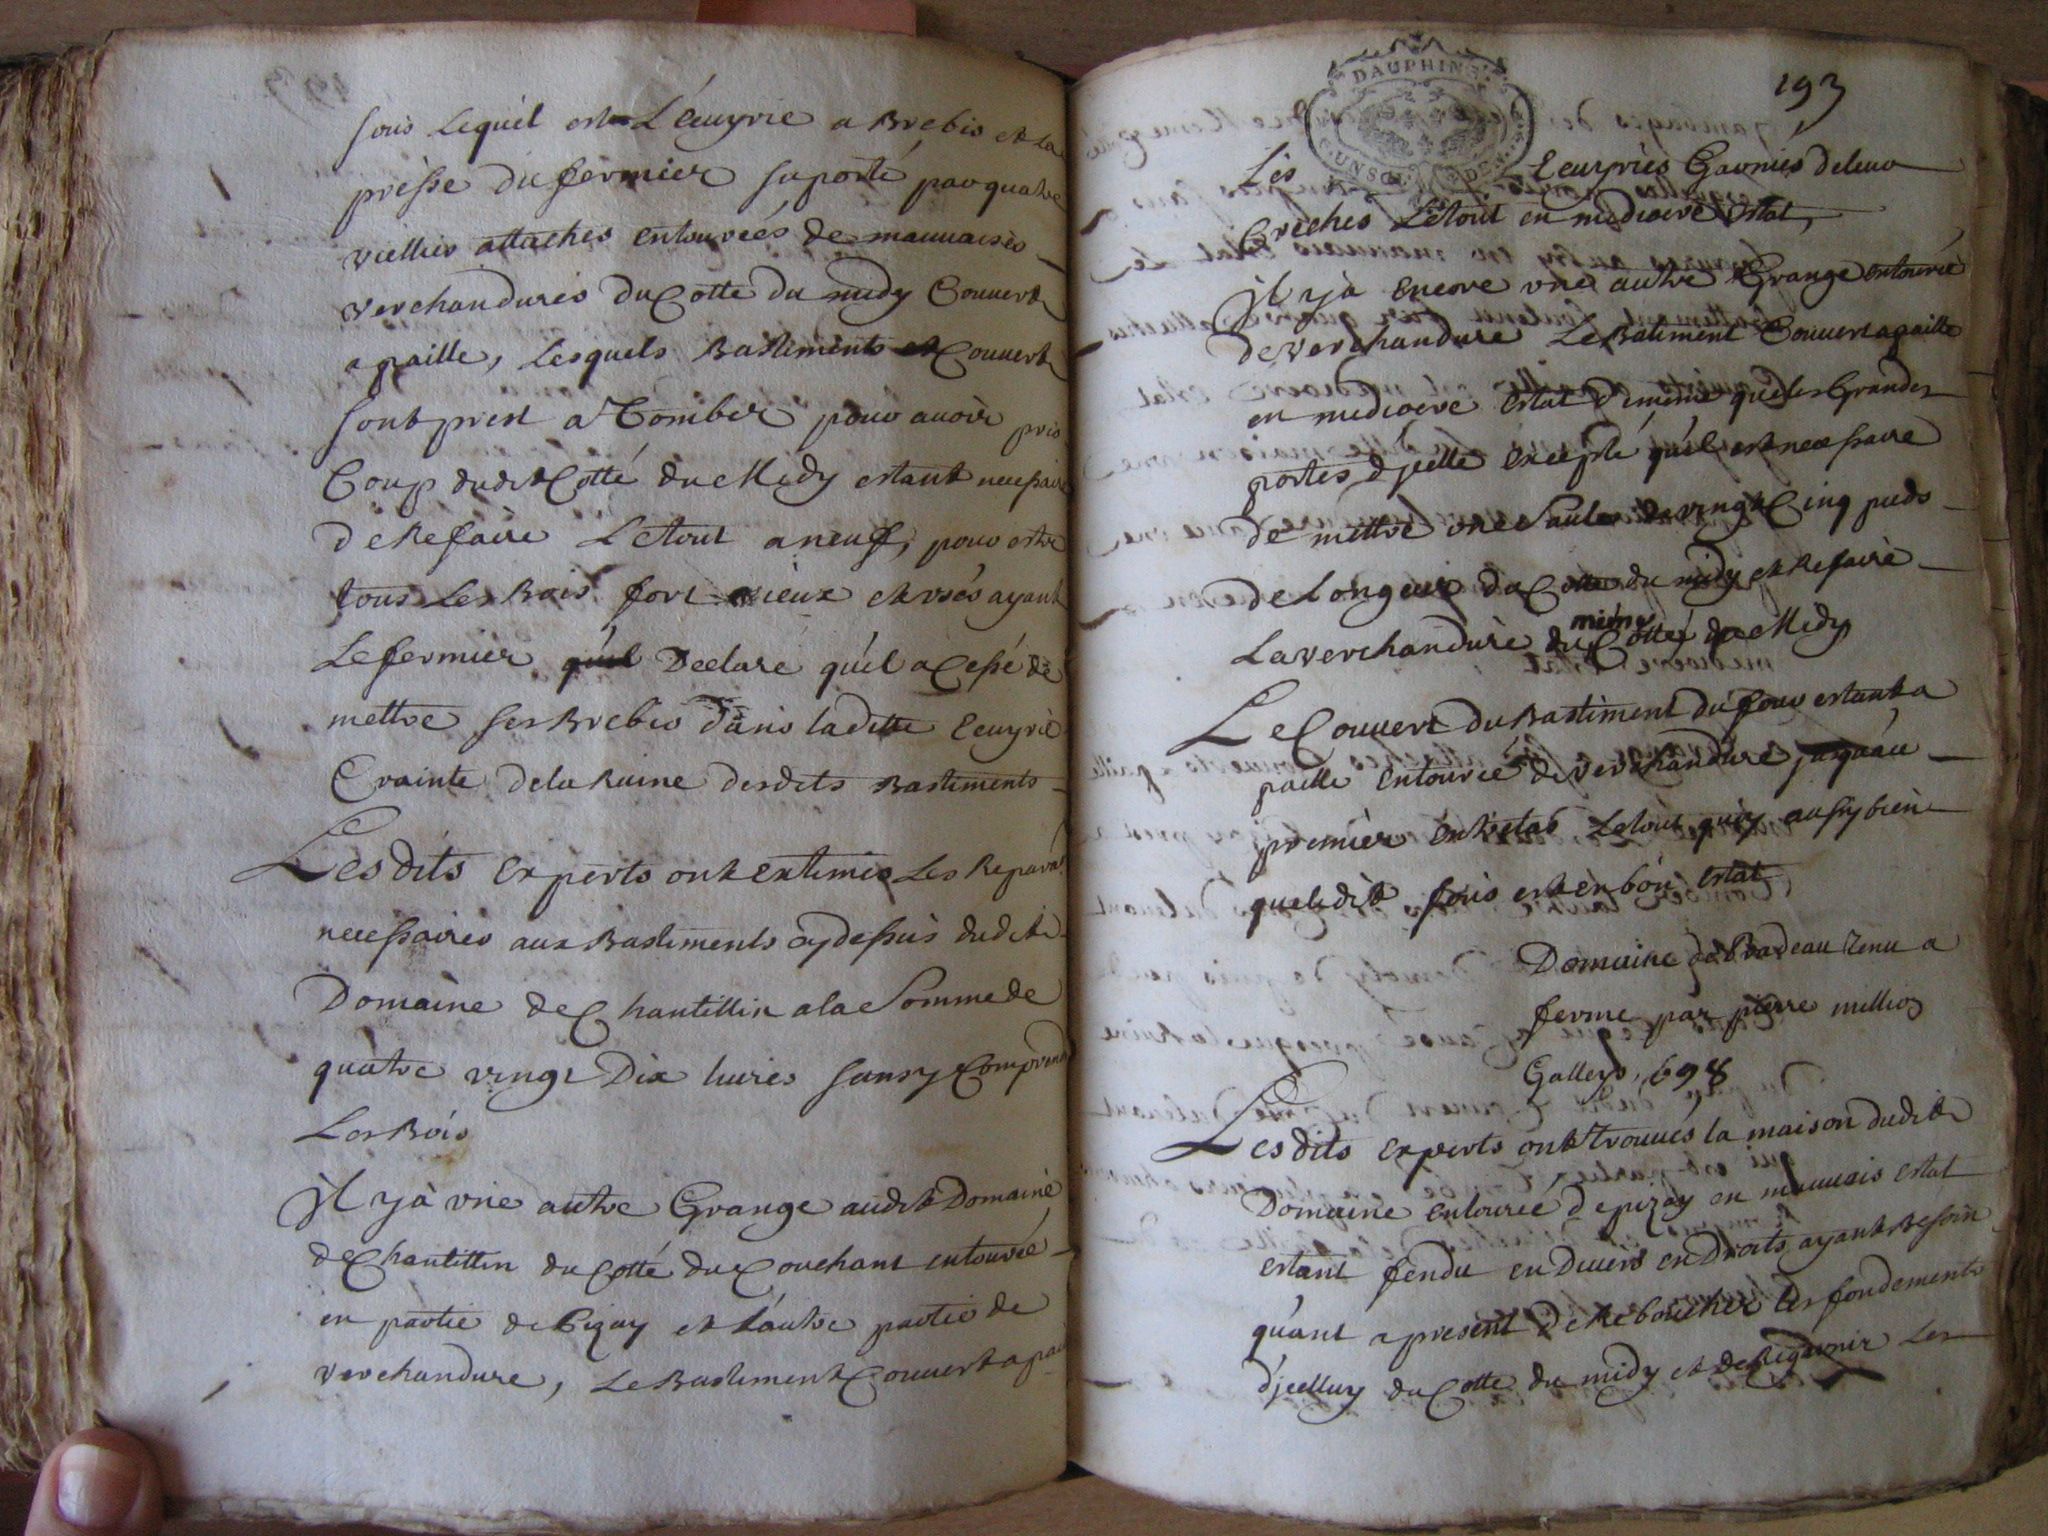 sous Lequel est L'écuyrie a Brebis et La
présse du fermier suporté par quatre
viellies attaches entourées de mauuaises
verchandures du Cotté du midy Couuert
a paille, Lesquels Bastiments et Couuert
sont prest a Tomber pour auoir pris
Coup dudit Cotté du Midy estant necessaire
de Refaire Le tout a neuf, pour estre
tous Les Bois fort vieux et usés ayant
Le fermier qu'il Declaré qu'il a Cessé de
mettre ses Brebis dans laditte Ecuyrie
Crainte de la Ruine desdits Bastiments
Lesdits Experts ont extimés Les Repara
necessaires aux Bastiments cy dessus dudit
Domaine de Chantillin a la Somme de
quatre vingt Dix liures sans y Comprendre
Les Bois
Il y à vne autre Grange audit Domaine
de Chantillin du Cotté du Couchant entourée
en partie de Pizay et L'autre partie de
verchandure, Le Bastiment Couuert a pail
193
DAUPHINE
Les Ecuyries Garnies de leur
Creches Le tout en mediocre Estat,
Il y à encore vne autre Grange entourée
de verchandure Le Batiment Couuert a paille
en mediocre Estat de même que les Grandes
portes d'jcelle Excepté qu'il est necessaire
de mettre vne Saule de vingt Cinq pieds
de Longeur du Cotté du midy et Refaire
La verchandure du même Cotté du Midy
Le Couuert du Bastiment du four estant a
paille entourée de verchandure jusquau
premier Le tout quoy aussy bien
que ledit four est en bon Estat
Domaine de Pradeau Tenu a
ferme par pierre millioz
Galleys, 698
Lesdits Experts ont trouués la maison dudit
Domaine entourée de pizay en mauuais estat
estant fendu en Diuers endroits ayant Besoin
quant a present de Reboucher les fondements
d'jcelluy du Cotté du midy et de Regarnir Les